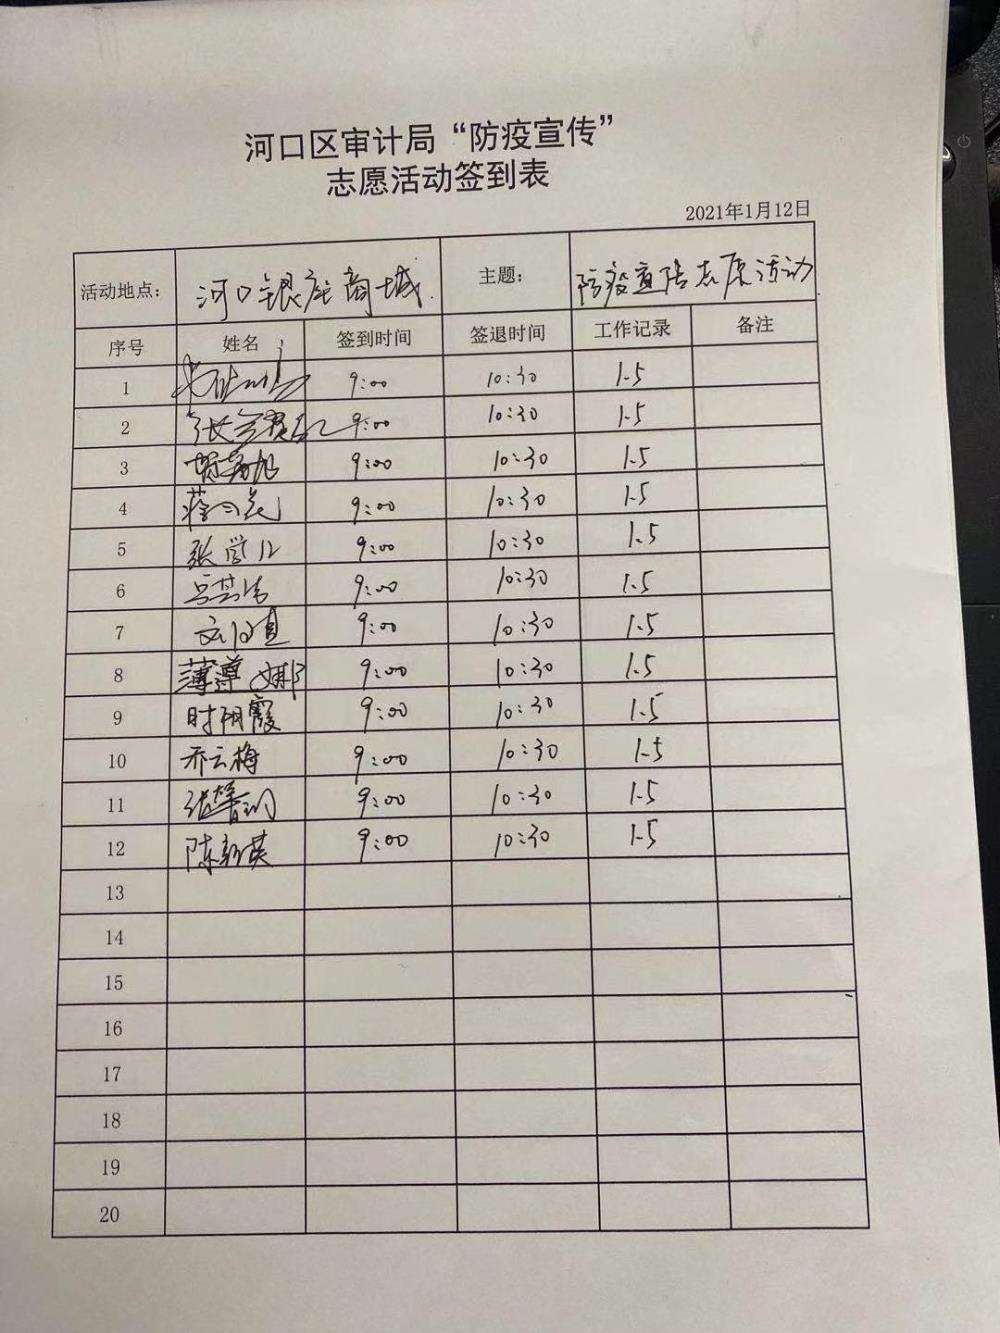 河口区审计局“防疫宣传”
志愿活动签到表
2021年1月12日
活动地点: 河口银座商城 主题: 防疫宣传志愿活动
序号 姓名 签到时间 签退时间 工作记录 备注
1 9:00 10:30 1.5
2 张 9:00 10:30 1.5
3 9:00 10:30 1.5
4 9:00 10:30 1.5
5 张 9:00 10:30 1.5
6 9:00 10:30 1.5
7 9:00 10:30 1.5
8 薄 娜 9:00 10:30 1.5
9 时丽霞 9:00 10:30 1.5
10 乔云梅 9:00 10:30 1.5
11 张 9:00 10:30 1.5
12 陈新英 9:00 10:30 1.5
13
14
15
16
17
18
19
20